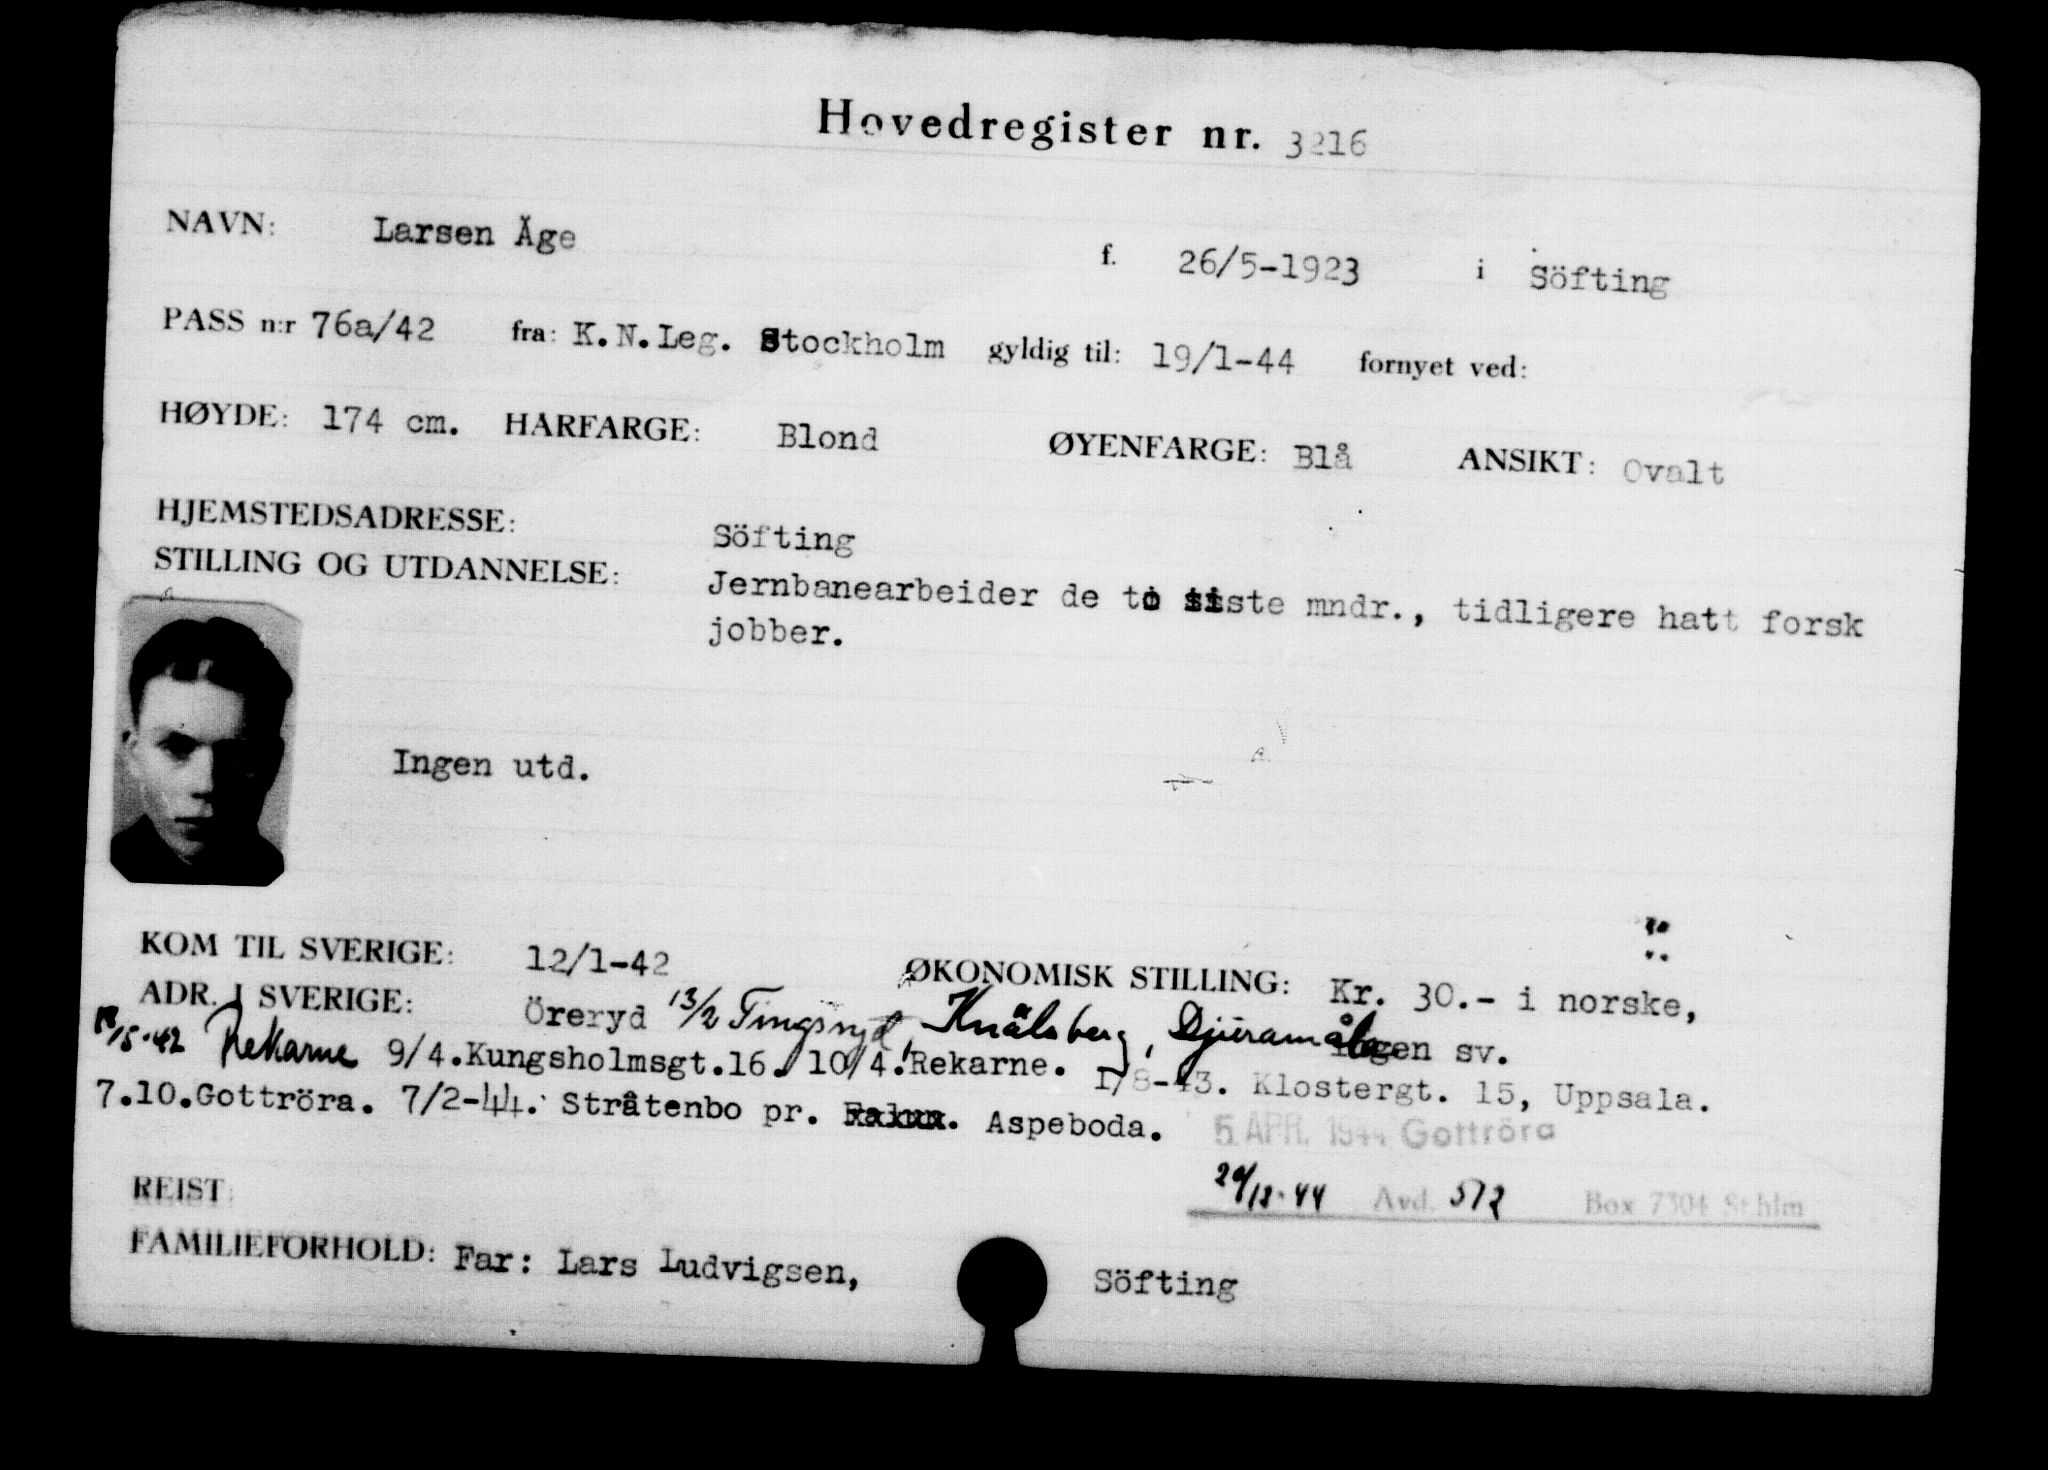 Hovedregister nr. 3216
NAVN: Larsen Åge f. 26/5-1923 i Söfting
PASS n:r 76a/42 fra: K.N.Leg. Stockholm gyldig til: 19/1-44 fornyet ved:
HØYDE: 174 cm. HÅRFARGE: Blond ØYENFARGE: Blå ANSIKT: Ovalt
HJEMSTEDSADRESSE: Söfting
STILLING OG UTDANNELSE: Jernbanearbeider de to siste mndr., tidligere hatt forsk
jobber.
Ingen utd.
KOM TIL SVERIGE: 12/1-42 ØKONOMISK STILLING: Kr. 30.- i norske,
ADR. I SVERIGE: Öreryd 13/2 Tingsryd, Knälsberg, Djuramåla Ingen sv.
/5-42 Rekarne 9/4.Kungsholmsgt.16. 10/4.Rekarne. 1/8-43. Klostergt. 15, Uppsala.
7.10.Gottröra. 7/2-44. Stråtenbo pr. Falun. Aspeboda. 5 APR. 1944 Gottröra
REIST: 29/12-44 Avd. 512 Box 7304 St.hlm
FAMILIEFORHOLD: Far: Lars Ludvigsen, Söfting